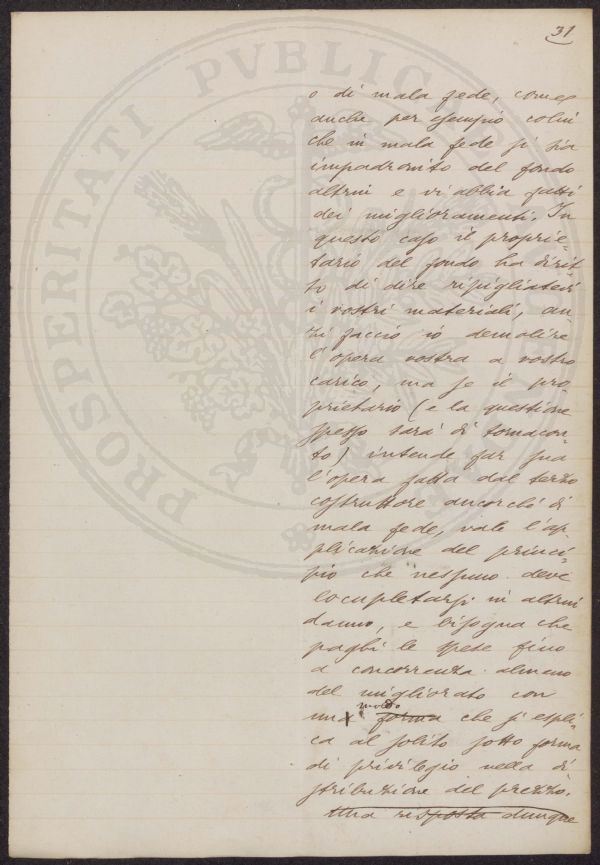 31
o di mala fede, come
anche per esempio colui
che in mala fede si sia
impadronito del fondo
altrui e vi abbia fatti
dei miglioramenti. In
questo caso il proprie-
tario del fondo ha dirit-
to di dire ripigliatevi
i vostri materiali, an-
zi faccio io demolire
l'opera vostra a vostro
carico, ma se il pro-
prietario (e la questione
spesso sarà di tornacon-
to) intende far sua
l'opera fatta dal terzo
costruttore ancorché di
mala fede, vale l'ap-
plicazione del princi-
pio che nessuno deve
locupletarsi in altrui
danno, e bisogna che
paghi le spese fino
a concorrenza almeno
del migliorato con
un modo forma che si espli-
ca al solito sotto forma
di privilegio nella di-
stribuzione del prezzo.
Una risposta dunque
PROSPERITATI PVBLICAE